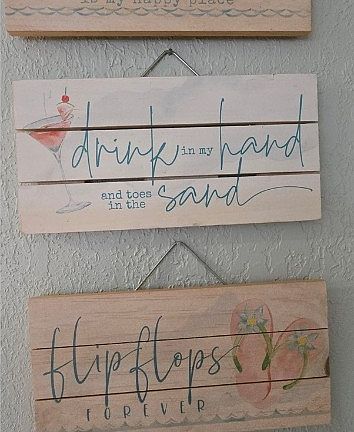 is my happy place
drink in my hand
and toes
in the sand
flip flops
FOREVER